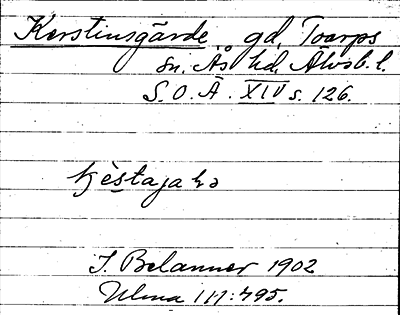 Kerstinsgärde gd. Toarps
sn. Ås hd. Älvsb. l.
S. O. Ä. XIV s. 126.
J. Belanner 1902
Ulma 117:495.